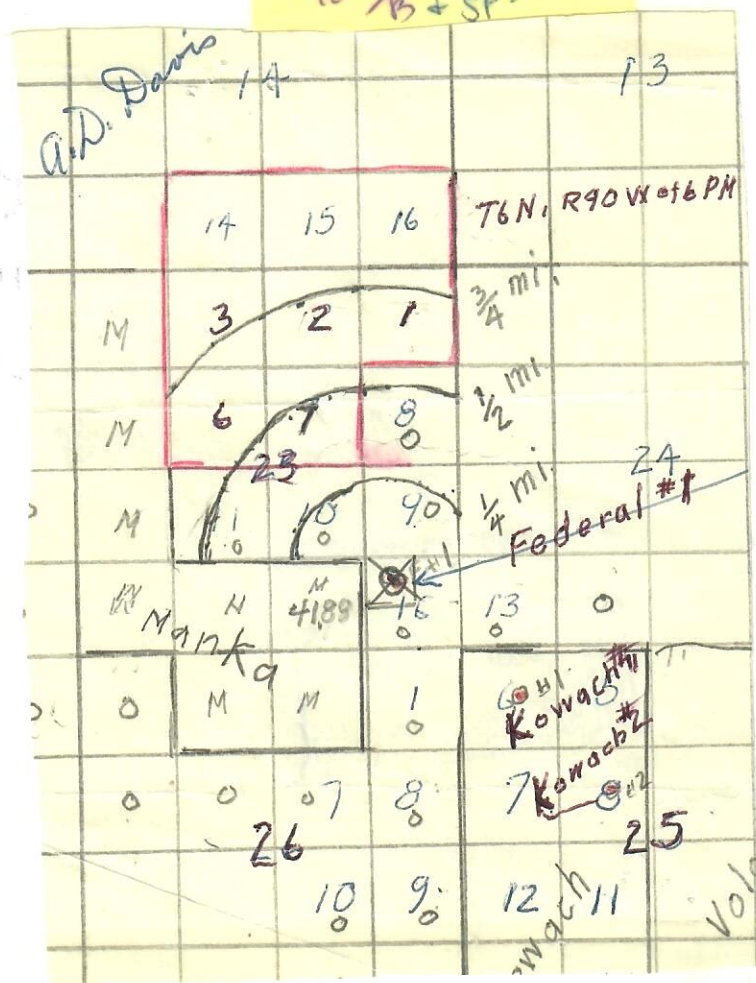 B & SP
A.D. Davis
14
13
14 15 16
T6N, R90W of 6 PM
M 3 2 1
3/4 mi.
M 6 7 8
1/2 mi
23
24
M 10 9
1/4 mi.
Federal #1
M M
4189 16 13
Manka
M M 1
#1
Kowach #1
Kowach #2
7 8 7 8 #2
26
25
10 9 12 11